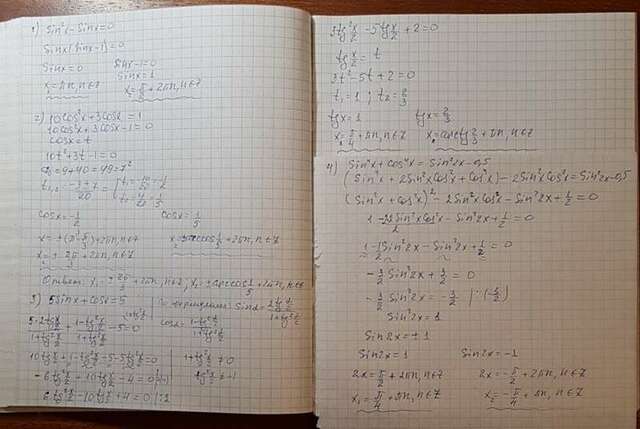 1) Sin²x - Sinx = 0
Sinx(Sinx-1) = 0
Sinx = 0 Sinx-1 = 0
Sinx = 1
x₁ = πn, n∈Z x₂ = π/2 + 2πn, n∈Z
2) 10cos²x + 3cosx = 1
10cos²x + 3cosx - 1 = 0
cosx = t
10t² + 3t - 1 = 0
D = 9 + 40 = 49 = 7²
t₁,₂ = (-3±7)/20 = [t₁ = -10/20 = -1/2
t₂ = 4/20 = 1/5
cosx = -1/2 cosx = 1/5
x = ±(π-π/3) + 2πn, n∈Z x₂ = ±arccos 1/5 + 2πn, n∈Z
x = ± 2π/3 + 2πn, n∈Z
Ответ: x₁ = ± 2π/3 + 2πn, n∈Z, x₂ = ±arccos 1/5 + 2πn, n∈Z
3) 5sinx + cosx = 5
Sinα = 2tg α/2 / 1+tg² α/2
cosα = 1-tg² α/2 / 1+tg² α/2
5·2tg x/2 / 1+tg² x/2 + 1-tg² x/2 / 1+tg² x/2 - 5 = 0
10tg x/2 + 1 - tg² x/2 - 5 - 5tg² x/2 = 0 1+tg² x/2 ≠ 0
-6tg² x/2 + 10tg x/2 - 4 = 0 |·(-1) tg² x/2 ≠ -1
6tg² x/2 - 10tg x/2 + 4 = 0 |:2
3tg² x/2 - 5tg x/2 + 2 = 0
tg x/2 = t
3t² - 5t + 2 = 0
t₁ = 1 ; t₂ = 2/3
tgx = 1 tgx = 2/3
x₁ = π/4 + πn, n∈Z x₂ = arctg 2/3 + πn, n∈Z
4) Sin⁴x + cos⁴x = Sin²2x - 0,5
(Sin⁴x + 2Sin²xcos²x + cos⁴x) - 2Sin²xcos²x = Sin²2x - 0,5
(Sin²x + cos²x)² - 2Sin²xcos²x - Sin²2x + 1/2 = 0
1 - 2·2Sin²xcos²x/2 - Sin²2x + 1/2 = 0
1 - 1/2 Sin²2x - Sin²2x + 1/2 = 0
-3/2 Sin²2x + 3/2 = 0
-3/2 Sin²2x = -3/2 |:(-3/2)
Sin²2x = 1
Sin2x = ±1
Sin2x = 1 Sin2x = -1
2x = π/2 + 2πn, n∈Z 2x = -π/2 + 2πn, n∈Z
x₁ = π/4 + πn, n∈Z x₂ = -π/4 + πn, n∈Z